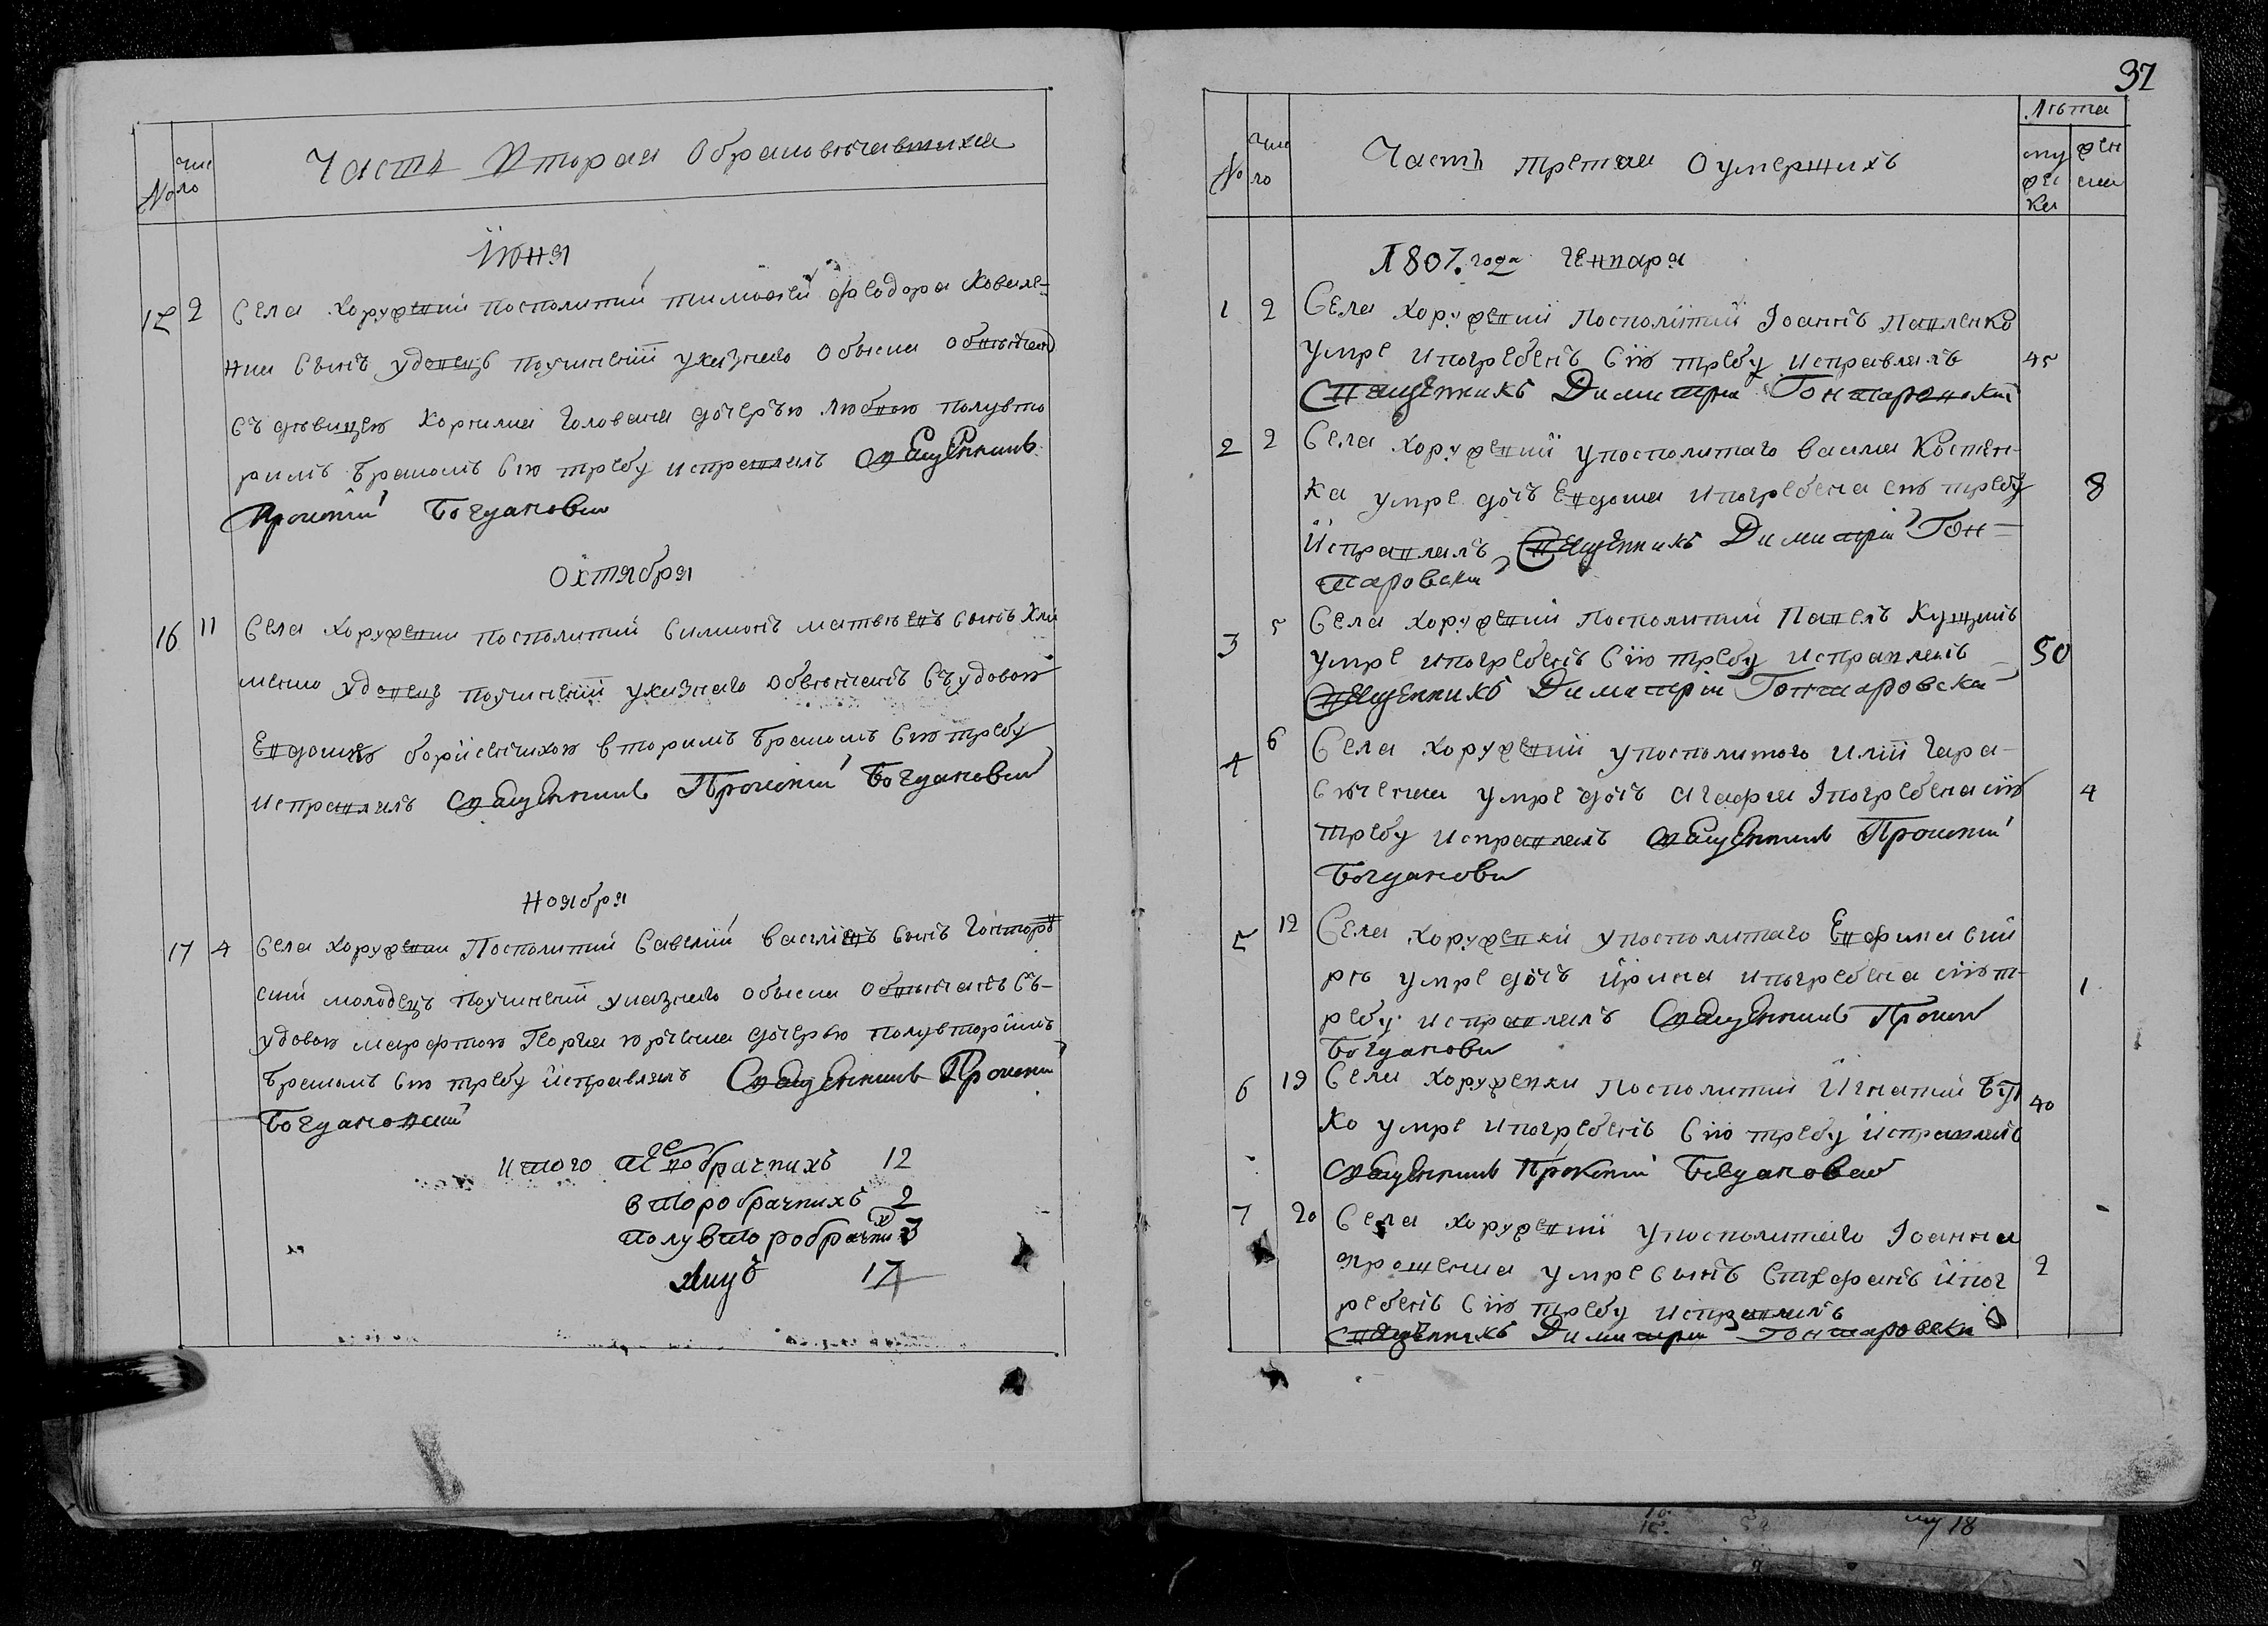 №
Чис
ло
Часть Вторая О браковѣнчавшихся
Іюня
15 2 Села Хоружевки посполитий Тимофей Феодора Ковале-
нка сынъ удовецъ поучиненій указнаго обыска обвѣнчанъ
съ дѣвицею Корнилія Голованя дочерью Любвою полувто
римъ бракомъ Сію требу исправлялъ Священникъ
Прокопій Богдановski
Октября
16 11 Села Хоружевки посполитий Симионъ Матвѣевъ сынъ Кли
менко удовецъ поучиненій указнаго обвѣнчанъ съ удовою
Евдокиею вторимъ бракомъ Сию требу
исправлялъ Священникъ Прокопій Богдановskiй
Ноября
17 4 Села Хоружевки Посполитий Савелій Василіевъ сынъ Гонтаров
ский молодецъ поучиненій указнаго обыска обвѣнчанъ съ-
удовою Марфою Георгия Юрченка дочерью полувторимъ
бракомъ Сию требу исправлялъ Священникъ Прокопий
Богдановский
итого первобрачнихъ 12
второбрачнихъ 2
полувторобрачних 3
лицъ 17
37
№
Чис
ло
Часть третая О умершихъ
Лѣта
му
жес
ка
жен
ска
1807. года Генваря
1 2 Села Хоружевки Посполитий Іоаннъ Павленко
умре и погребенъ Сію требу исправлялъ 45
Священникъ Димитрий Гонтаровский
2 2 Села Хоружевкї у посполитаго Василия Костен-
ка умре дочь Евдокия и погребена сию требу 8
Исправлялъ Священникъ Димитрій Гон-
таровски
3 5 Села Хоружевки Посполитий Павелъ
умре и погребенъ Сію требу исправлялъ 50
Священникъ Димитрій Гонтаровски
4 6 Села Хоружевкї у посполитого Иліи Гера-
сѣченка умре дочь Агафия и погребена сїю 4
требу исправлялъ Священникъ Прокопий
Богдановски
5 12 Села Хоружевки у посполитаго Евфима
умре дочь Ирина и погребена сїю т-
ребу исправлялъ Священникъ Прокопи 1
Богдановски
6 19 Села Хоружевки посполитий Игнатий
ко умре и погребенъ Сию требу исправлялъ 40
Священникъ Прокопий Богдановски
7 20 Села Хоружевкї у посполитаго Іоанна
умре сынъ Стефанъ и пог 2
ребенъ Сїю требу исправлялъ
Священникъ Димитрий Гонтаровски